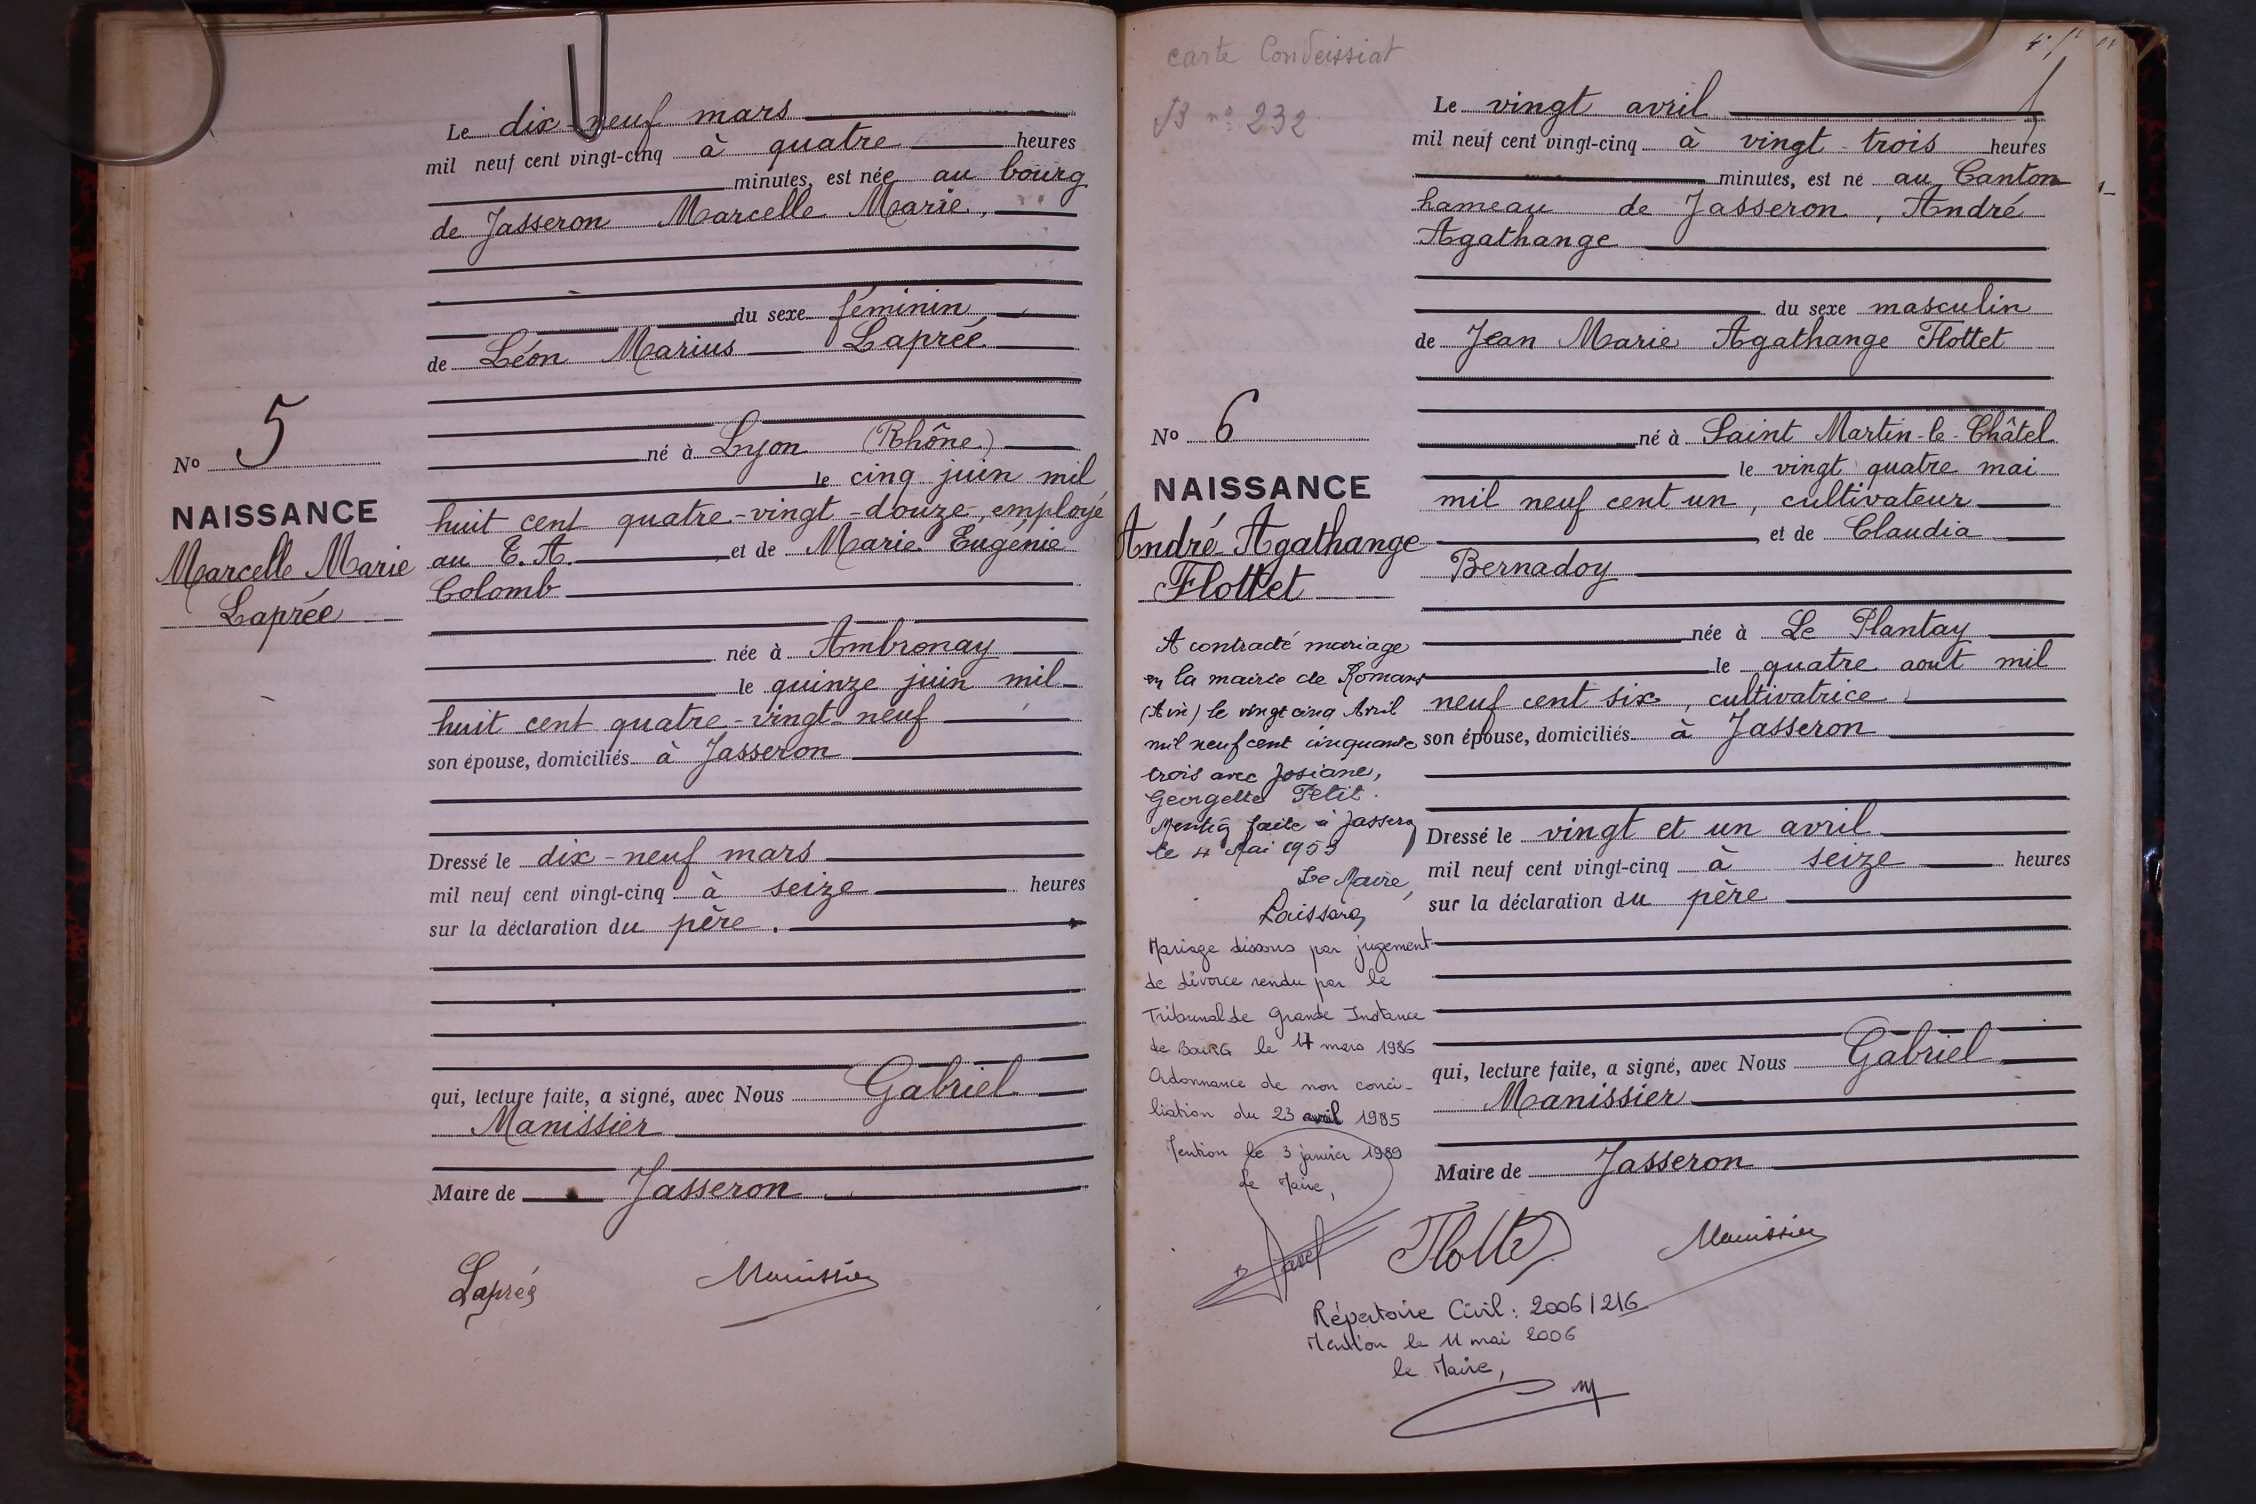 Le dix-neuf mars
mil neuf cent vingt-cinq à quatre heures
minutes, est née au bourg
de Jasseron Marcelle Marie,
du sexe féminin
de Léon Marius Laprée
né à Lyon (Rhône)
le cinq juin mil
huit cent quatre-vingt-douze, employé
au T.A. et de Marie Eugénie
Colomb
née à Ambronay
le quinze juin mil
huit cent quatre-vingt-neuf
son épouse, domiciliés à Jasseron
Dressé le dix-neuf mars
mil neuf cent vingt-cinq à seize heures
sur la déclaration du père.
qui, lecture faite, a signé, avec Nous Gabriel
Manissier
Maire de Jasseron
Laprée Manissier
No 5
NAISSANCE
Marcelle Marie
Laprée
carte Condeissiat
B no 232
Le vingt avril
mil neuf cent vingt-cinq à vingt trois heures
minutes, est né au Canton
hameau de Jasseron, André
Agathange
du sexe masculin
de Jean Marie Agathange Flottet
né à Saint Martin-le-Châtel
le vingt quatre mai
mil neuf cent un, cultivateur
et de Claudia
Bernadoy
née à Le Plantay
le quatre aout mil
neuf cent six, cultivatrice
son épouse, domiciliés à Jasseron
Dressé le vingt et un avril
mil neuf cent vingt-cinq à seize heures
sur la déclaration du père
qui, lecture faite, a signé, avec Nous Gabriel
Manissier
Maire de Jasseron
Flottet Manissier
No 6
NAISSANCE
André Agathange
Flottet
A contracté mariage
en la mairie de Romans
(Ain) le vingt cinq Avril
mil neuf cent cinquante
trois avec Josiane,
Georgette Petit.
Mention faite à Jasseron
le 4 Mai 1953
Le Maire,
Mariage dissous par jugement
de divorce rendu par le
Tribunal de Grande Instance
de BOURG le 17 mars 1986
Ordonnance de non conci-
liation du 23 avril 1985
Mention le 3 janvier 1989
Le Maire,
Répertoire Civil: 2006/216
Mention le 11 mai 2006
le Maire,